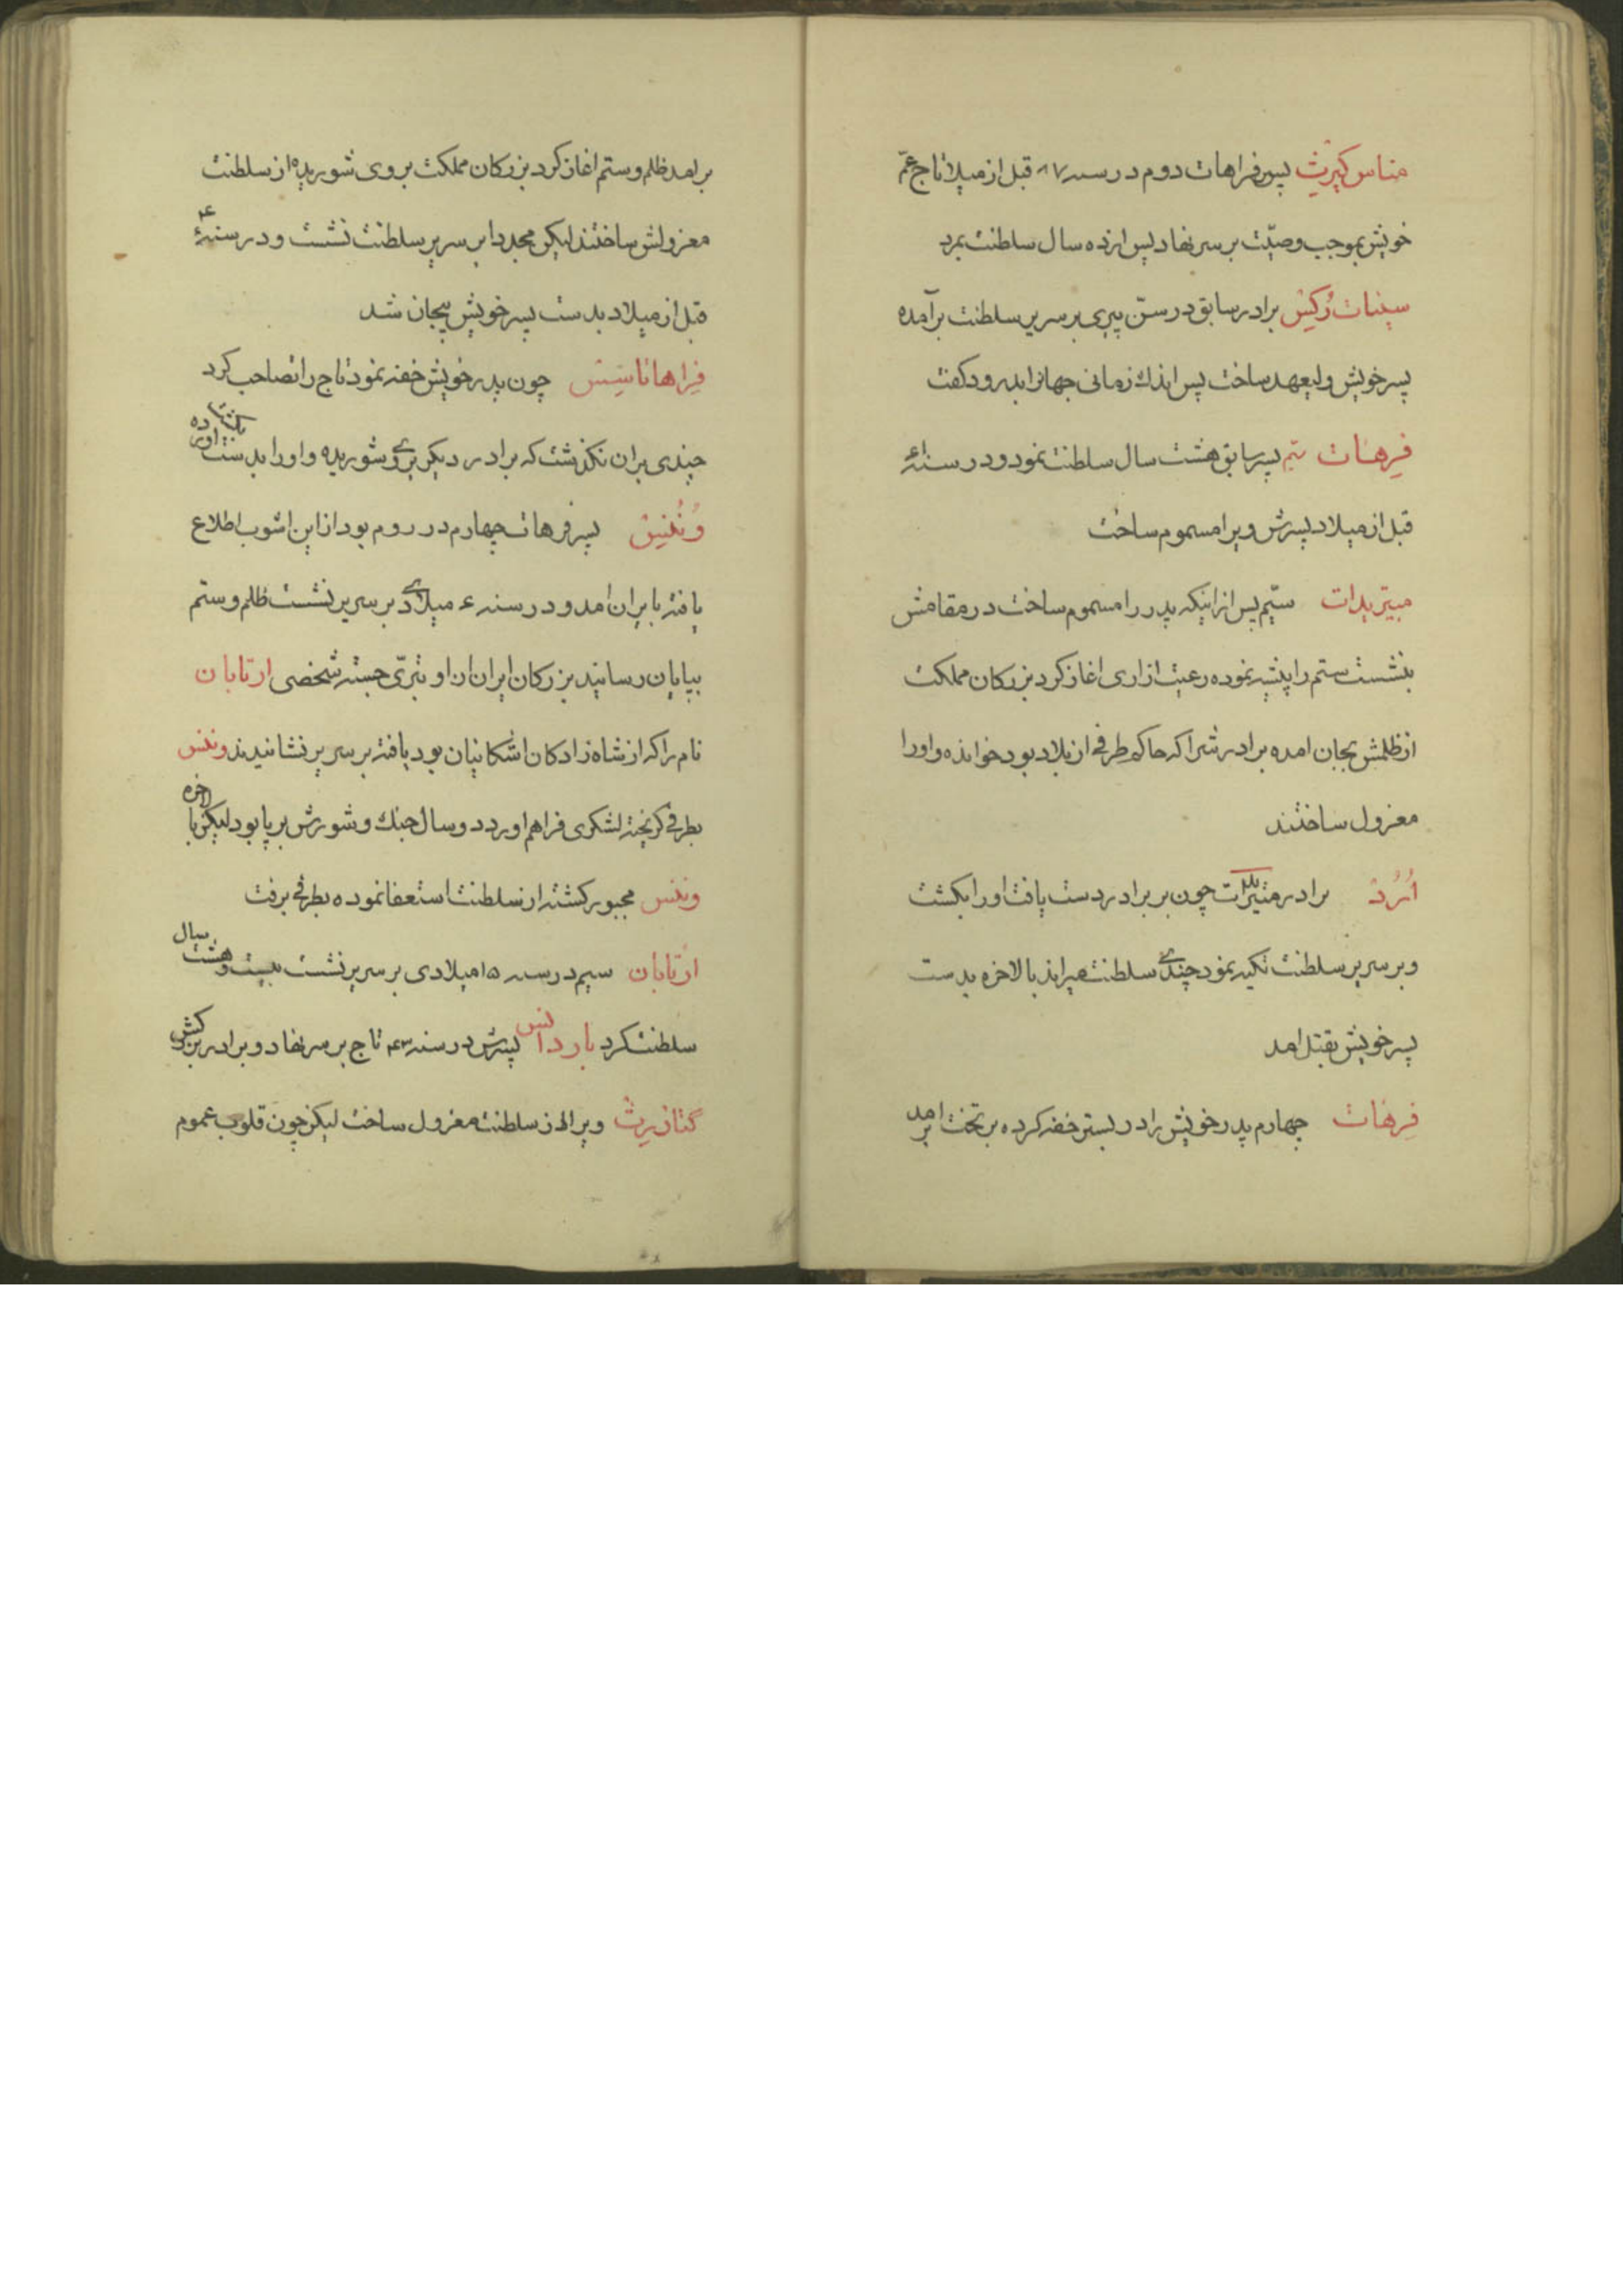 مناس کیرث پسر فراهات دوم در سنه ۸۷ قبل از میلاد تاج عمّ
خویش بموجب وصیّت بر سر نهاد پس از ده سال سلطنت بمرد
سینات رُکیش برادر سابق در سنّ پیری بر سریر سلطنت برآمده
پسر خویش ولیعهد ساخت پس اندك زمانی جهانرا بدرود کفت
فرهات سیّم پسر سابق هشت سال سلطنت نمود و در سنه
قبل از میلاد پسرش ویرا مسموم ساخت
میتریدات سیّم پس از اینکه پدر را مسموم ساخت در مقامش
بنشست ستم را پیشه نموده رعیت ازاری اغاز کرد بزرکان مملکت
از ظلمش بجان امده برادرش را که حاکم طرفی از بلاد بود خوانده و اورا
معزول ساختند
اُرُد برادر میتریدات چون بر برادر دست یافت اورا بکشت
و بر سریر سلطنت تکیه نمود چندی سلطنت میراند بالاخره بدست
پسر خویش بقتل امد
فرهات چهارم پدر خویش را در بستر خفه کرده بر تخت بر امد
برامد ظلم و ستم اغاز کرد بزرکان مملکت بر وی شوریده از سلطنت
معزولش ساختند لیکن مجددا بر سریر سلطنت نشست و در سنهٔ ۴
قبل از میلاد بدست پسر خویش بیجان شد
فراهاتاسیس چون پدر خویش خفه نمود تاج را تصاحب کرد
چندی بران نکذشت که برادر دیکر بروی شوریده و اورا بدست اورده بکشت
وُنُنیس پسر فرهات چهارم در روم بود از این اشوب اطلاع
یافته بایران امد و در سنه ۴ میلادی بر سریر نشست ظلم و ستم
بپایان رسانید بزرکان ایران از او تبرّی جسته شخصی ارتابان
نام را که از شاه زادکان اشکانیان بود یافته بر سریر نشانیدند ونُنس
بطرفی کریخته لشکری فراهم اورد دو سال جنك و شورش بر پا بود لیکن بالاخره
ونُنس مجبور کشته از سلطنت استعفا نموده بطرفی برفت
ارتابان سیم در سنه ۱۵ میلادی بر سریر نشست بیست و هشت سال
سلطنت کرد باردانس پسرش در سنه ۴۳ تاج بر سر نهاد و برادر بزرکش
کتازرث ویرا از سلطنت معزول ساخت لیکن چون قلوب عموم